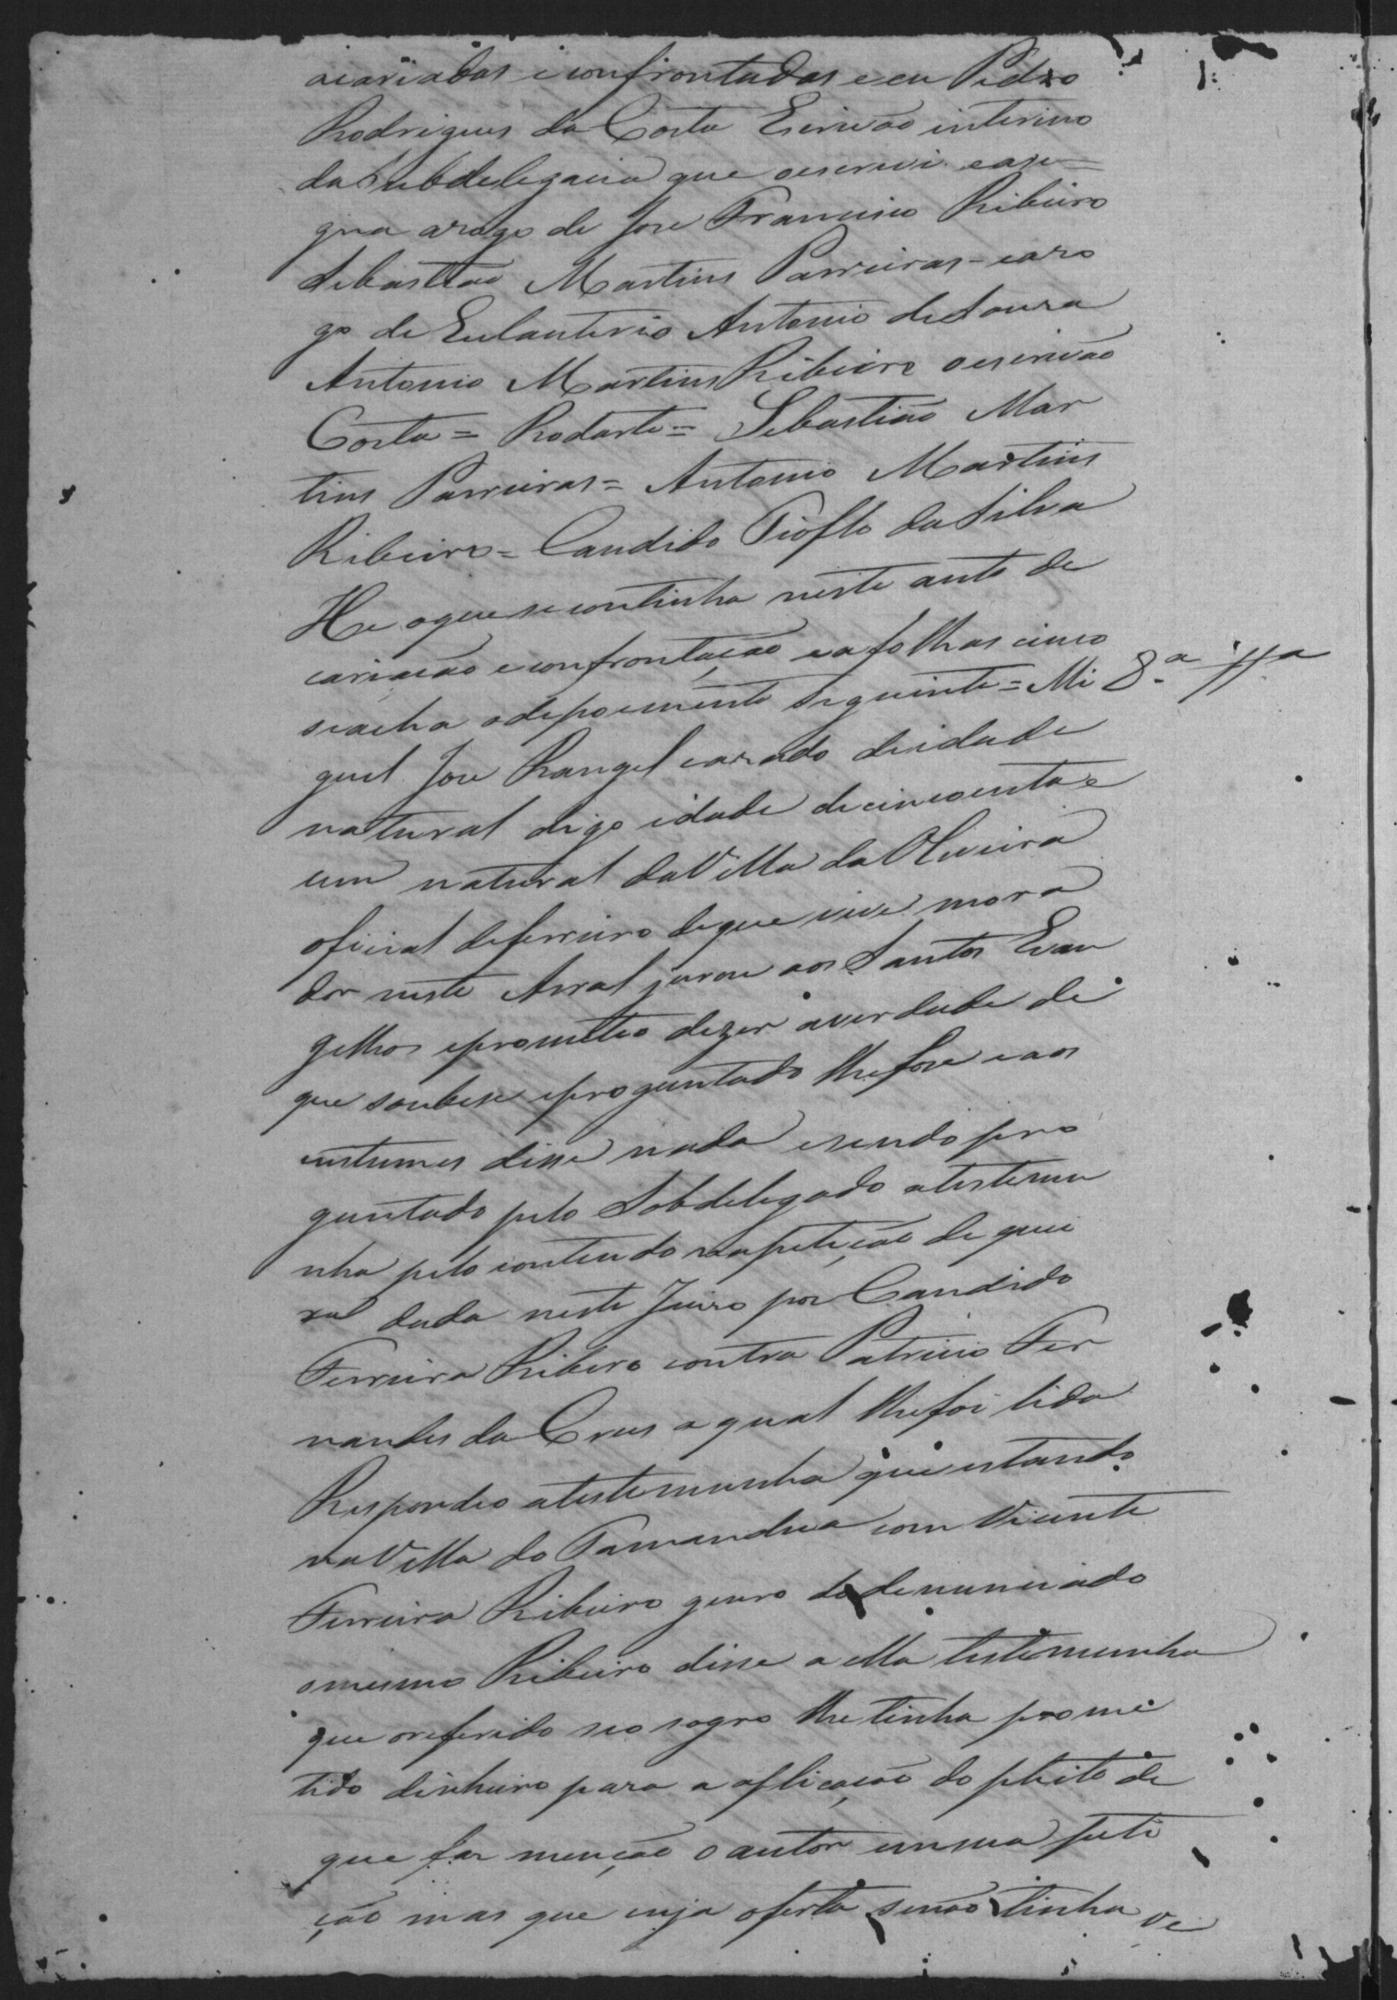 acariadas e confrontadas e eu Pedro
Rodrigues da Costa Escrivão interino
da Subdelegacia que oescrevi easi=
gna arogo de Jose Francisco Ribeiro
Sebastiao Martins Parreiras - earo
go de Eulauterio Antonio de Souza
Antonio Martins Ribeiro oescrivão
Costa = Rodarte = Sebastião Mar
tins Parreiras = Antonio Martins
Ribeiro = Candido da Silva
He oque se continha neste auto de
cariacão econfrontação ea folhas cinco
seacha odepoimento siguinte = Mi 8.a
guel Jose Rangel cazado deidade
natural digo idade decincoenta e
um natural da Villa da Oliveira
oficial deferreiro deque vive mora
dor neste Arral jurou aos Santos Evan
gelhos eprometeo dezer averdade de
que soubese eproguntado lhefose eaos
custumes disse nada esendo pro
guntado pelo Sobdelegado atestemu
nha pelo contendo napetição de quei
xa dada neste Juizo por Candido
Ferreira Ribero contra Patricio Fer
nandes da Crus aqual lhefoi lida
Respondeo atestemunha que estando
na Villa do Tamandua com Vicente
Ferreira Ribeiro genro do denunciado
omesmo Ribeiro disse a ella testemunha
que oreferido seo sogro lhe tinha prome
tido dinheiro para a aflicação do pleito de
que faz menção o autor emsua peti
ção mas que cuja oferta senão tinha ve